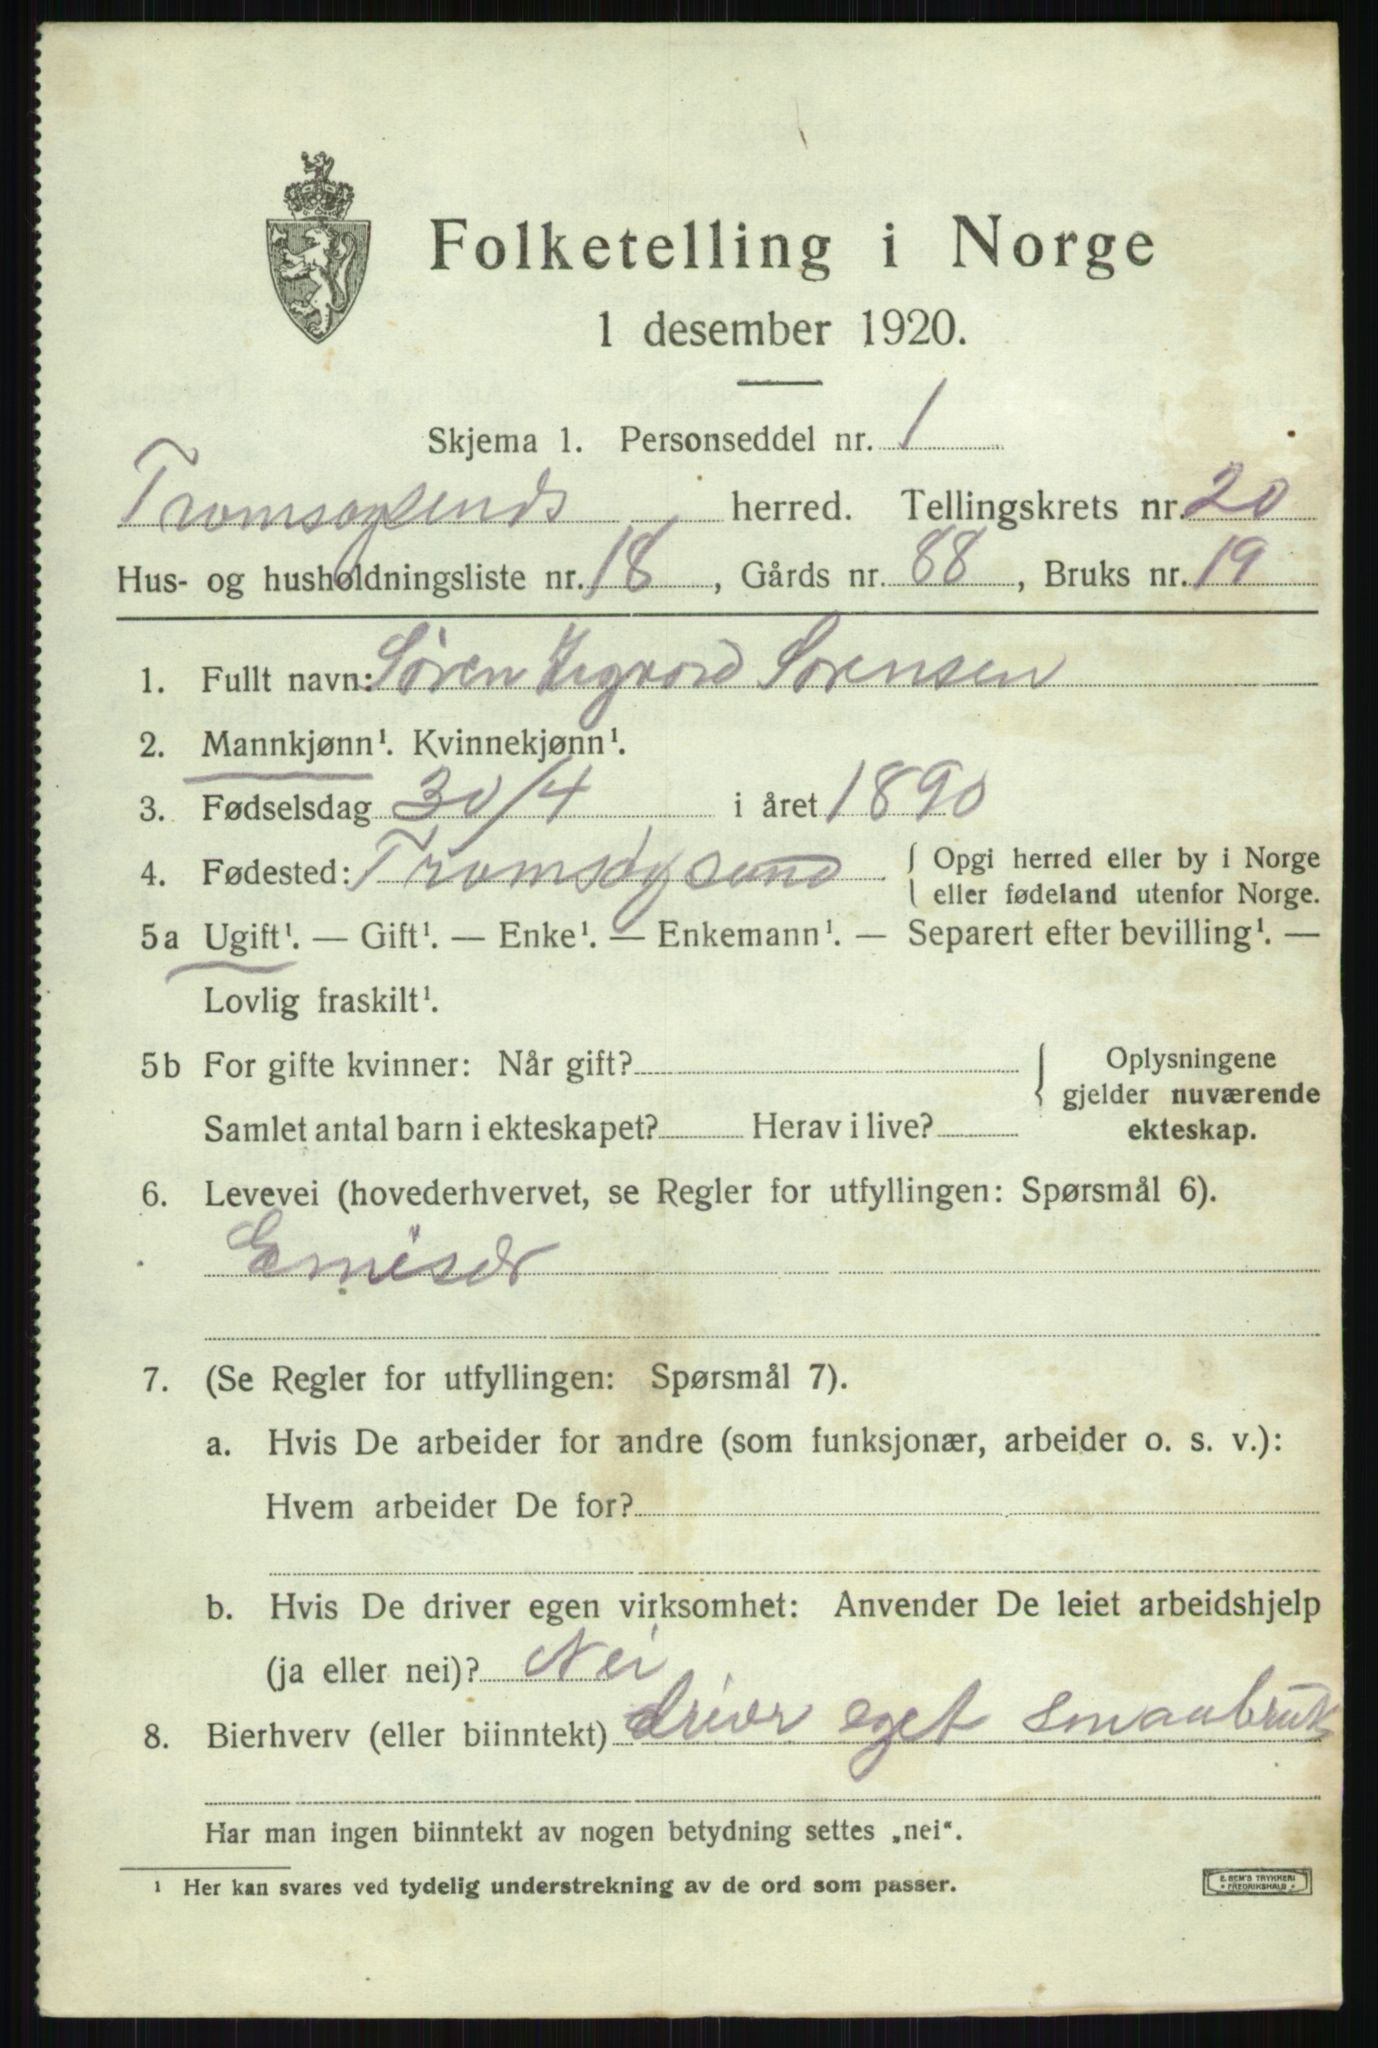 Folketelling i Norge
1 desember 1920.
Skjema 1. Personseddel nr. 1
Tromsøysunds herred. Tellingskrets nr. 20
Hus- og husholdningsliste nr. 18, Gårds nr. 88, Bruks nr. 19
1. Fullt navn: Søren Sørensen
2. Mannkjønn¹. Kvinnekjønn¹.
3. Fødselsdag 30/4 i året 1890
4. Fødested: Tromsøysund { Opgi herred eller by i Norge
eller fødeland utenfor Norge.
5a Ugift¹. — Gift¹. — Enke¹. — Enkemann¹. — Separert efter bevilling¹. —
Lovlig fraskilt¹.
5b For gifte kvinner: Når gift? { Oplysningene
gjelder nuværende
Samlet antal barn i ekteskapet? Herav i live? ekteskap.
6. Levevei (hovederhvervet, se Regler for utfyllingen: Spørsmål 6).
Emisær
7. (Se Regler for utfyllingen: Spørsmål 7).
a. Hvis De arbeider for andre (som funksjonær, arbeider o. s. v.):
Hvem arbeider De for?
b. Hvis De driver egen virksomhet: Anvender De leiet arbeidshjelp
(ja eller nei)? Nei
8. Bierhverv (eller biinntekt) driver eget smaabruk
Har man ingen biinntekt av nogen betydning settes „nei“.
¹ Her kan svares ved tydelig understrekning av de ord som passer.
E. SEM'S TRYKKERI
• FREDRIKSHALD •